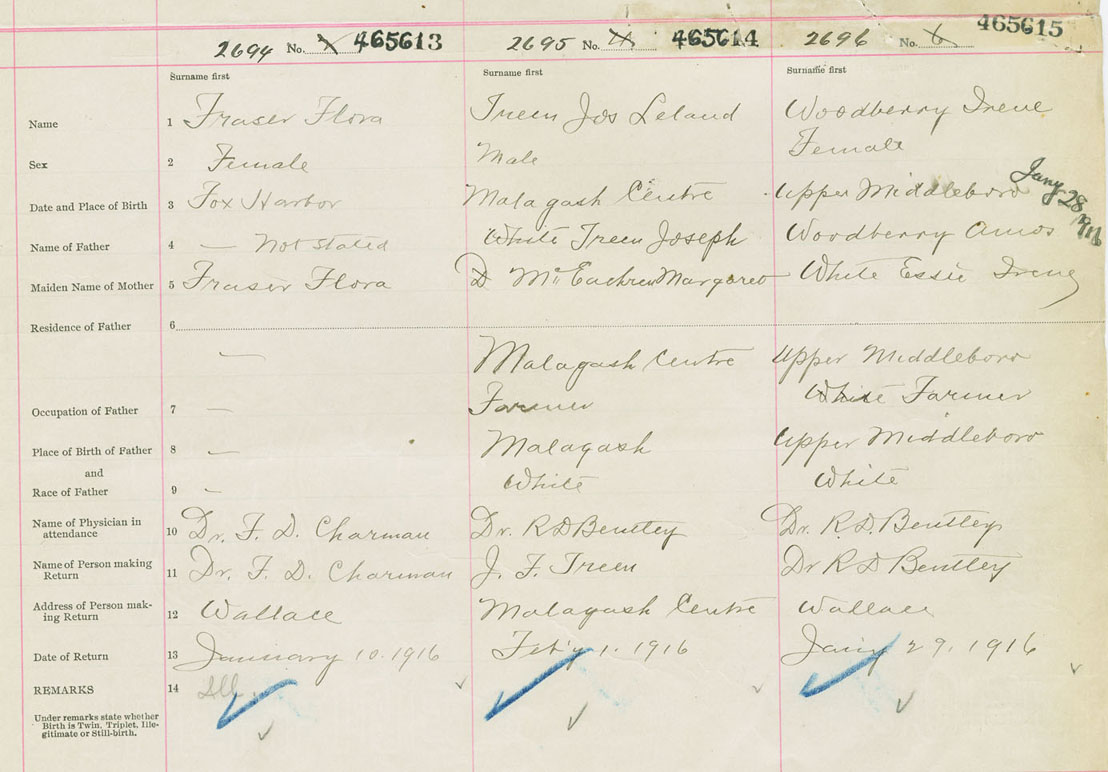 2694 No. 2 465613 2695 No. 4 465614 2696 No. 6 465615
Surname first Surname first Surname first
Name 1 Fraser Flora Treen Jos Leland Woodberry Irene
Sex 2 Female Male Female
Date and Place of Birth 3 Fox Harbor Malagash Centre Upper Middleboro Jany 28 1916
Name of Father 4 — Not stated White Treen Joseph Woodberry Amos
Maiden Name of Mother 5 Fraser Flora D McEachren Margaret White Essie Irene
Residence of Father 6
— Malagash Centre Upper Middleboro
Occupation of Father 7 — Farmer White Farmer
Place of Birth of Father 8 — Malagash Upper Middleboro
and
Race of Father 9 — White White
Name of Physician in
attendance 10 Dr. F. D. Charman Dr. R D Bentley Dr. R. D. Bentley
Name of Person making
Return 11 Dr. F. D. Charman J. F. Treen Dr R D Bentley
Address of Person mak-
ing Return 12 Wallace Malagash Centre Wallace
Date of Return 13 January 10. 1916 Feb'y 1. 1916 Jany 29, 1916
REMARKS 14 Ill.
Under remarks state whether
Birth is Twin, Triplet, Ille-
gitimate or Still-birth.